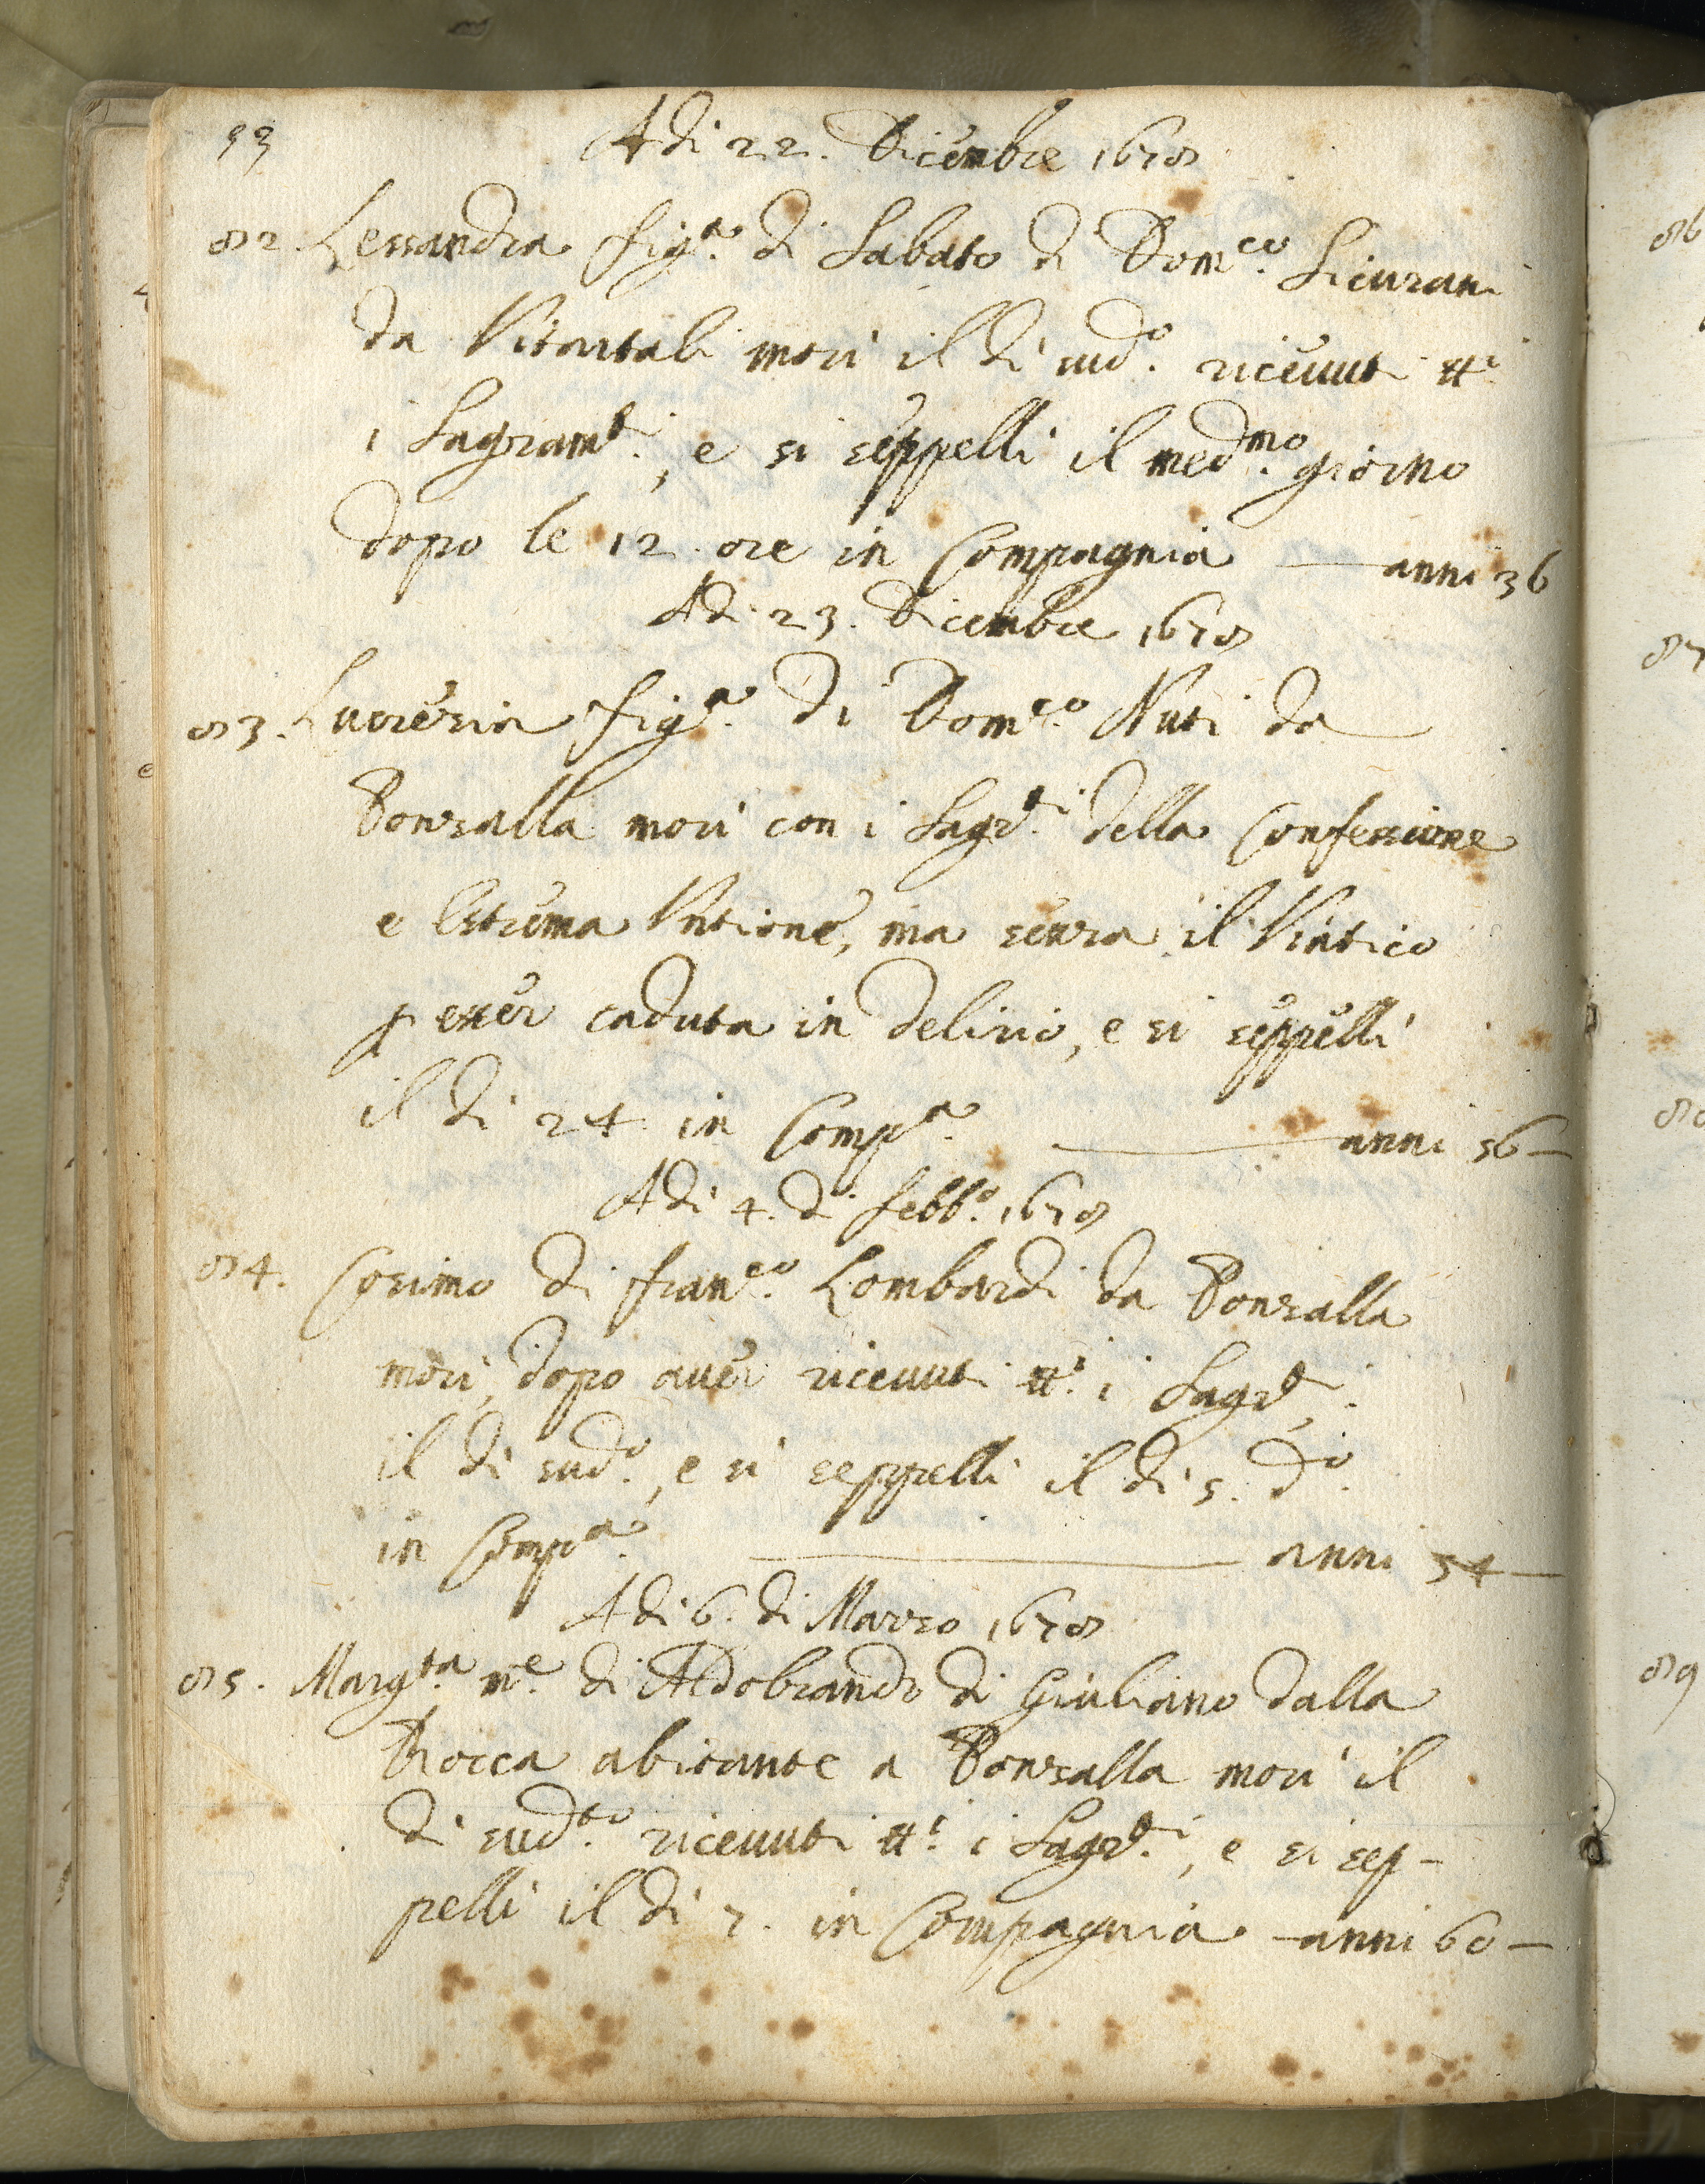 93
Adi 22. Dicembre 1678
82. Lessandra fig.a di Sabato di Dom.co Sicurani
da Vitartali morì il dì sud.o ricevuti tt.i
i Sagram.ti, e si seppellì il med.mo giorno
dopo le 12. ore in Compagnia — anni 36
Adi 23. Dicembre 1678
83. Lucrezia fig.a di Dom.co Nuti da
Bonzalla morì con i Sagr.ti della Confessione
e Estrema Untione, ma senza il Viatico
p esser caduta in delirio, e si seppellì
il dì 24 in Comp.a — anni 56 —
Adi 4. di febb.o 1678
84. Cosimo di Fran.co Lombardi da Bonzalla
morì, dopo aver ricevuti tt.i i Sagr.ti
il dì sud.o, e si seppellì il dì 5. d.o
in Comp.a — anni 54 —
Adi 6. di Marzo 1678
85. Marg.ta m.e di Aldobrando di Giuliano dalla
Rocca abitante a Bonzalla morì il
dì sud.to ricevuti tt.i i Sagr.ti, e si sep-
pellì il dì 7. in Compagnia — anni 60 —
86
87
89